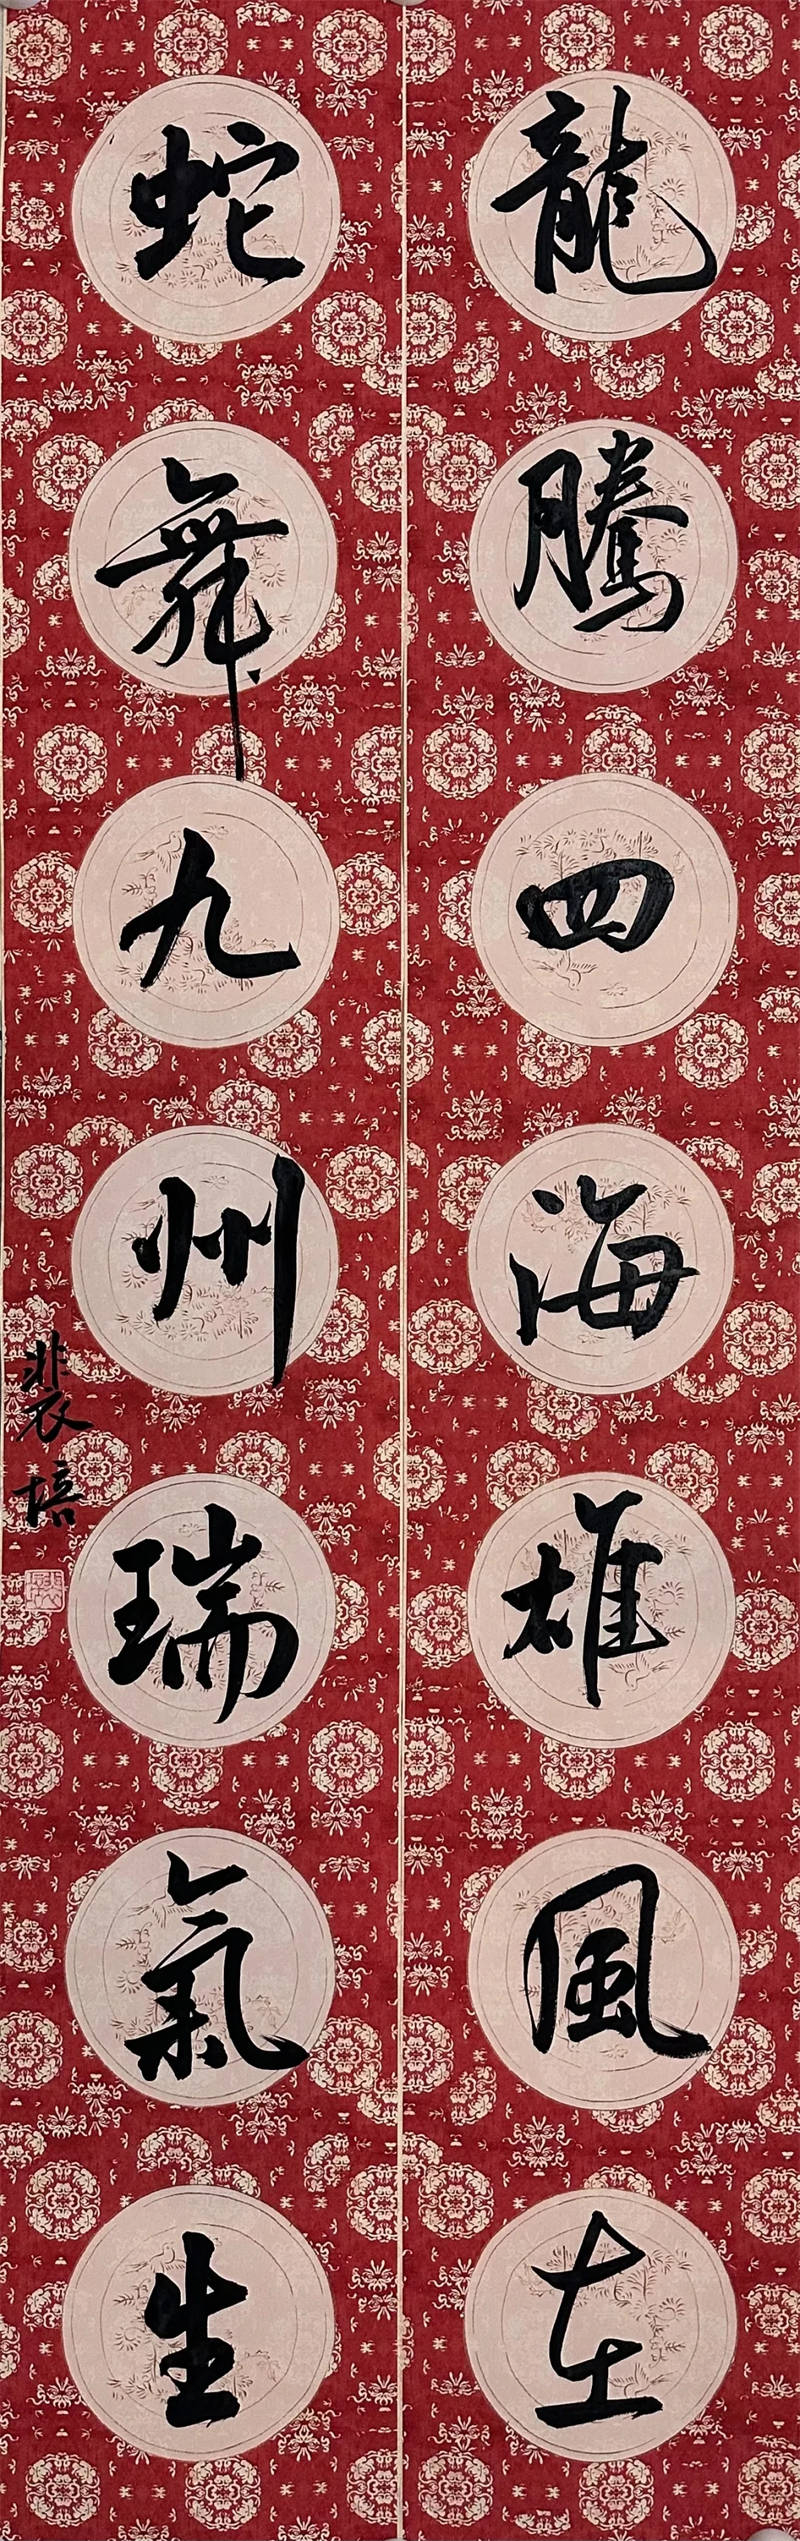 龍騰四海雄風在
蛇舞九州瑞氣生
裴培